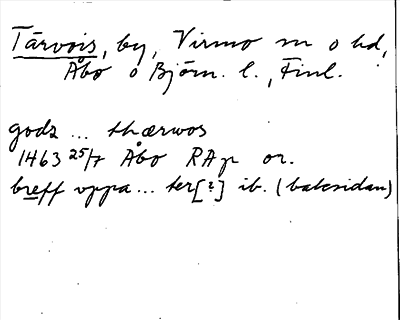 Tärvois, by, Virmo sn o hd,
Åbo o Björn. l., Finl.
godz ... thærwos
1463 25/7 Åbo RAp or.
breff vppa ... ter[?] ib. (baksidan)